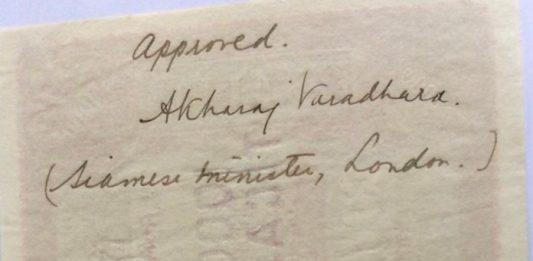 Approved.
Akharaj Varadhara.
(Siamese Minister, London.)